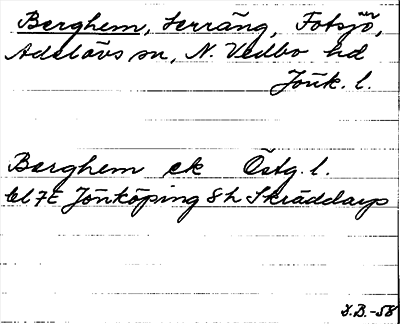 Berghem, Terräng, Fotsjön,
Adelövs sn, N. Vedbo hd
Jönk. l.
Berghem ek Östg. l.
bl 7E Jönköping 8h Skräddarp
-58